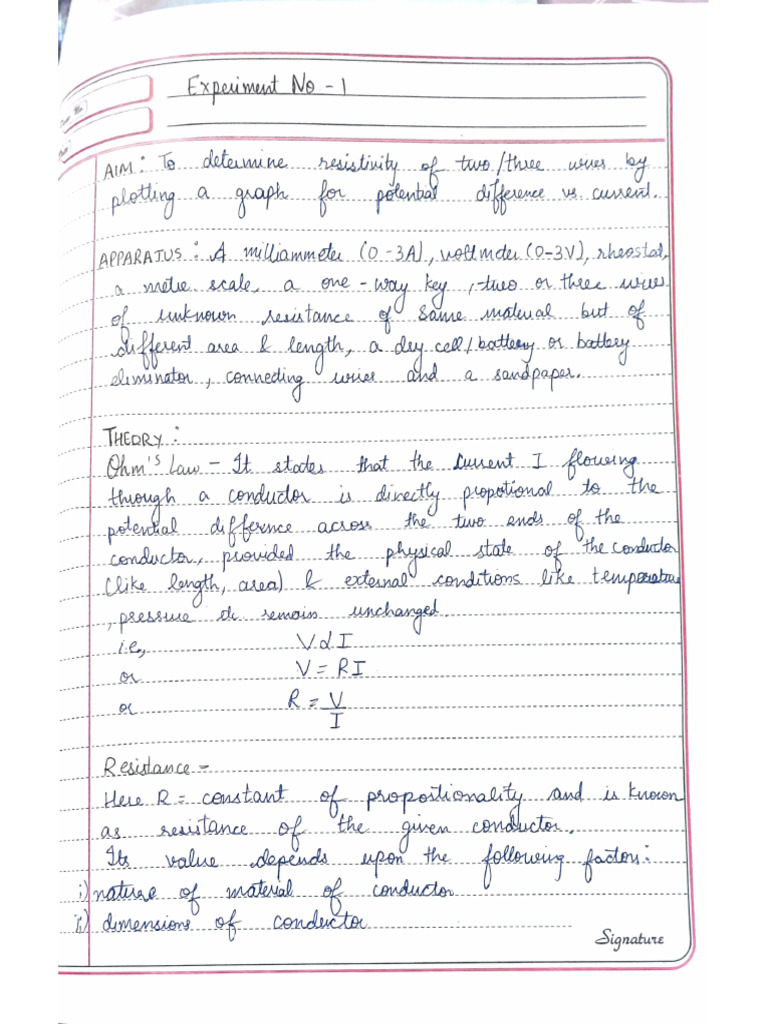 Experiment No - 1
AIM : To determine resistivity of two/three wires by
plotting a graph for potential difference vs. current.
APPARATUS : A milliammeter (0-3A), voltmeter (0-3V), rheostat,
a metre scale, a one-way key, two or three wires
of unknown resistance of same material but of
different area & length, a dry cell/battery or battery
eliminator, connecting wires and a sandpaper.
THEORY :
Ohm's Law - It states that the current I flowing
through a conductor is directly propotional to the
potential difference across the two ends of the
conductor, provided the physical state of the conductor
(like length, area) & external conditions like temperature
, pressure etc remain unchanged.
i.e, V α I
or V = RI
or R = V
I
Resistance -
Here R = constant of propostionality and is known
as resistance of the given conductor.
Its value depends upon the following factors:
i) nature of material of conductor
ii) dimensions of conductor
Signature